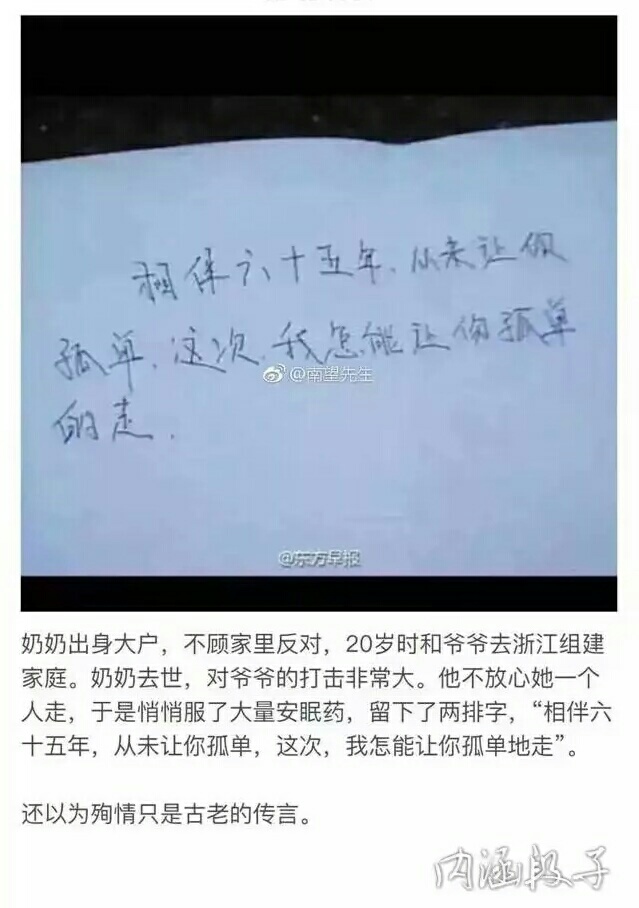 相伴六十五年，从未让你
孤单，这次，我怎能让你孤单
的走．
@南望先生
@东方早报
奶奶出身大户，不顾家里反对，20岁时和爷爷去浙江组建
家庭。奶奶去世，对爷爷的打击非常大。他不放心她一个
人走，于是悄悄服了大量安眠药，留下了两排字，“相伴六
十五年，从未让你孤单，这次，我怎能让你孤单地走”。
还以为殉情只是古老的传言。
内涵段子